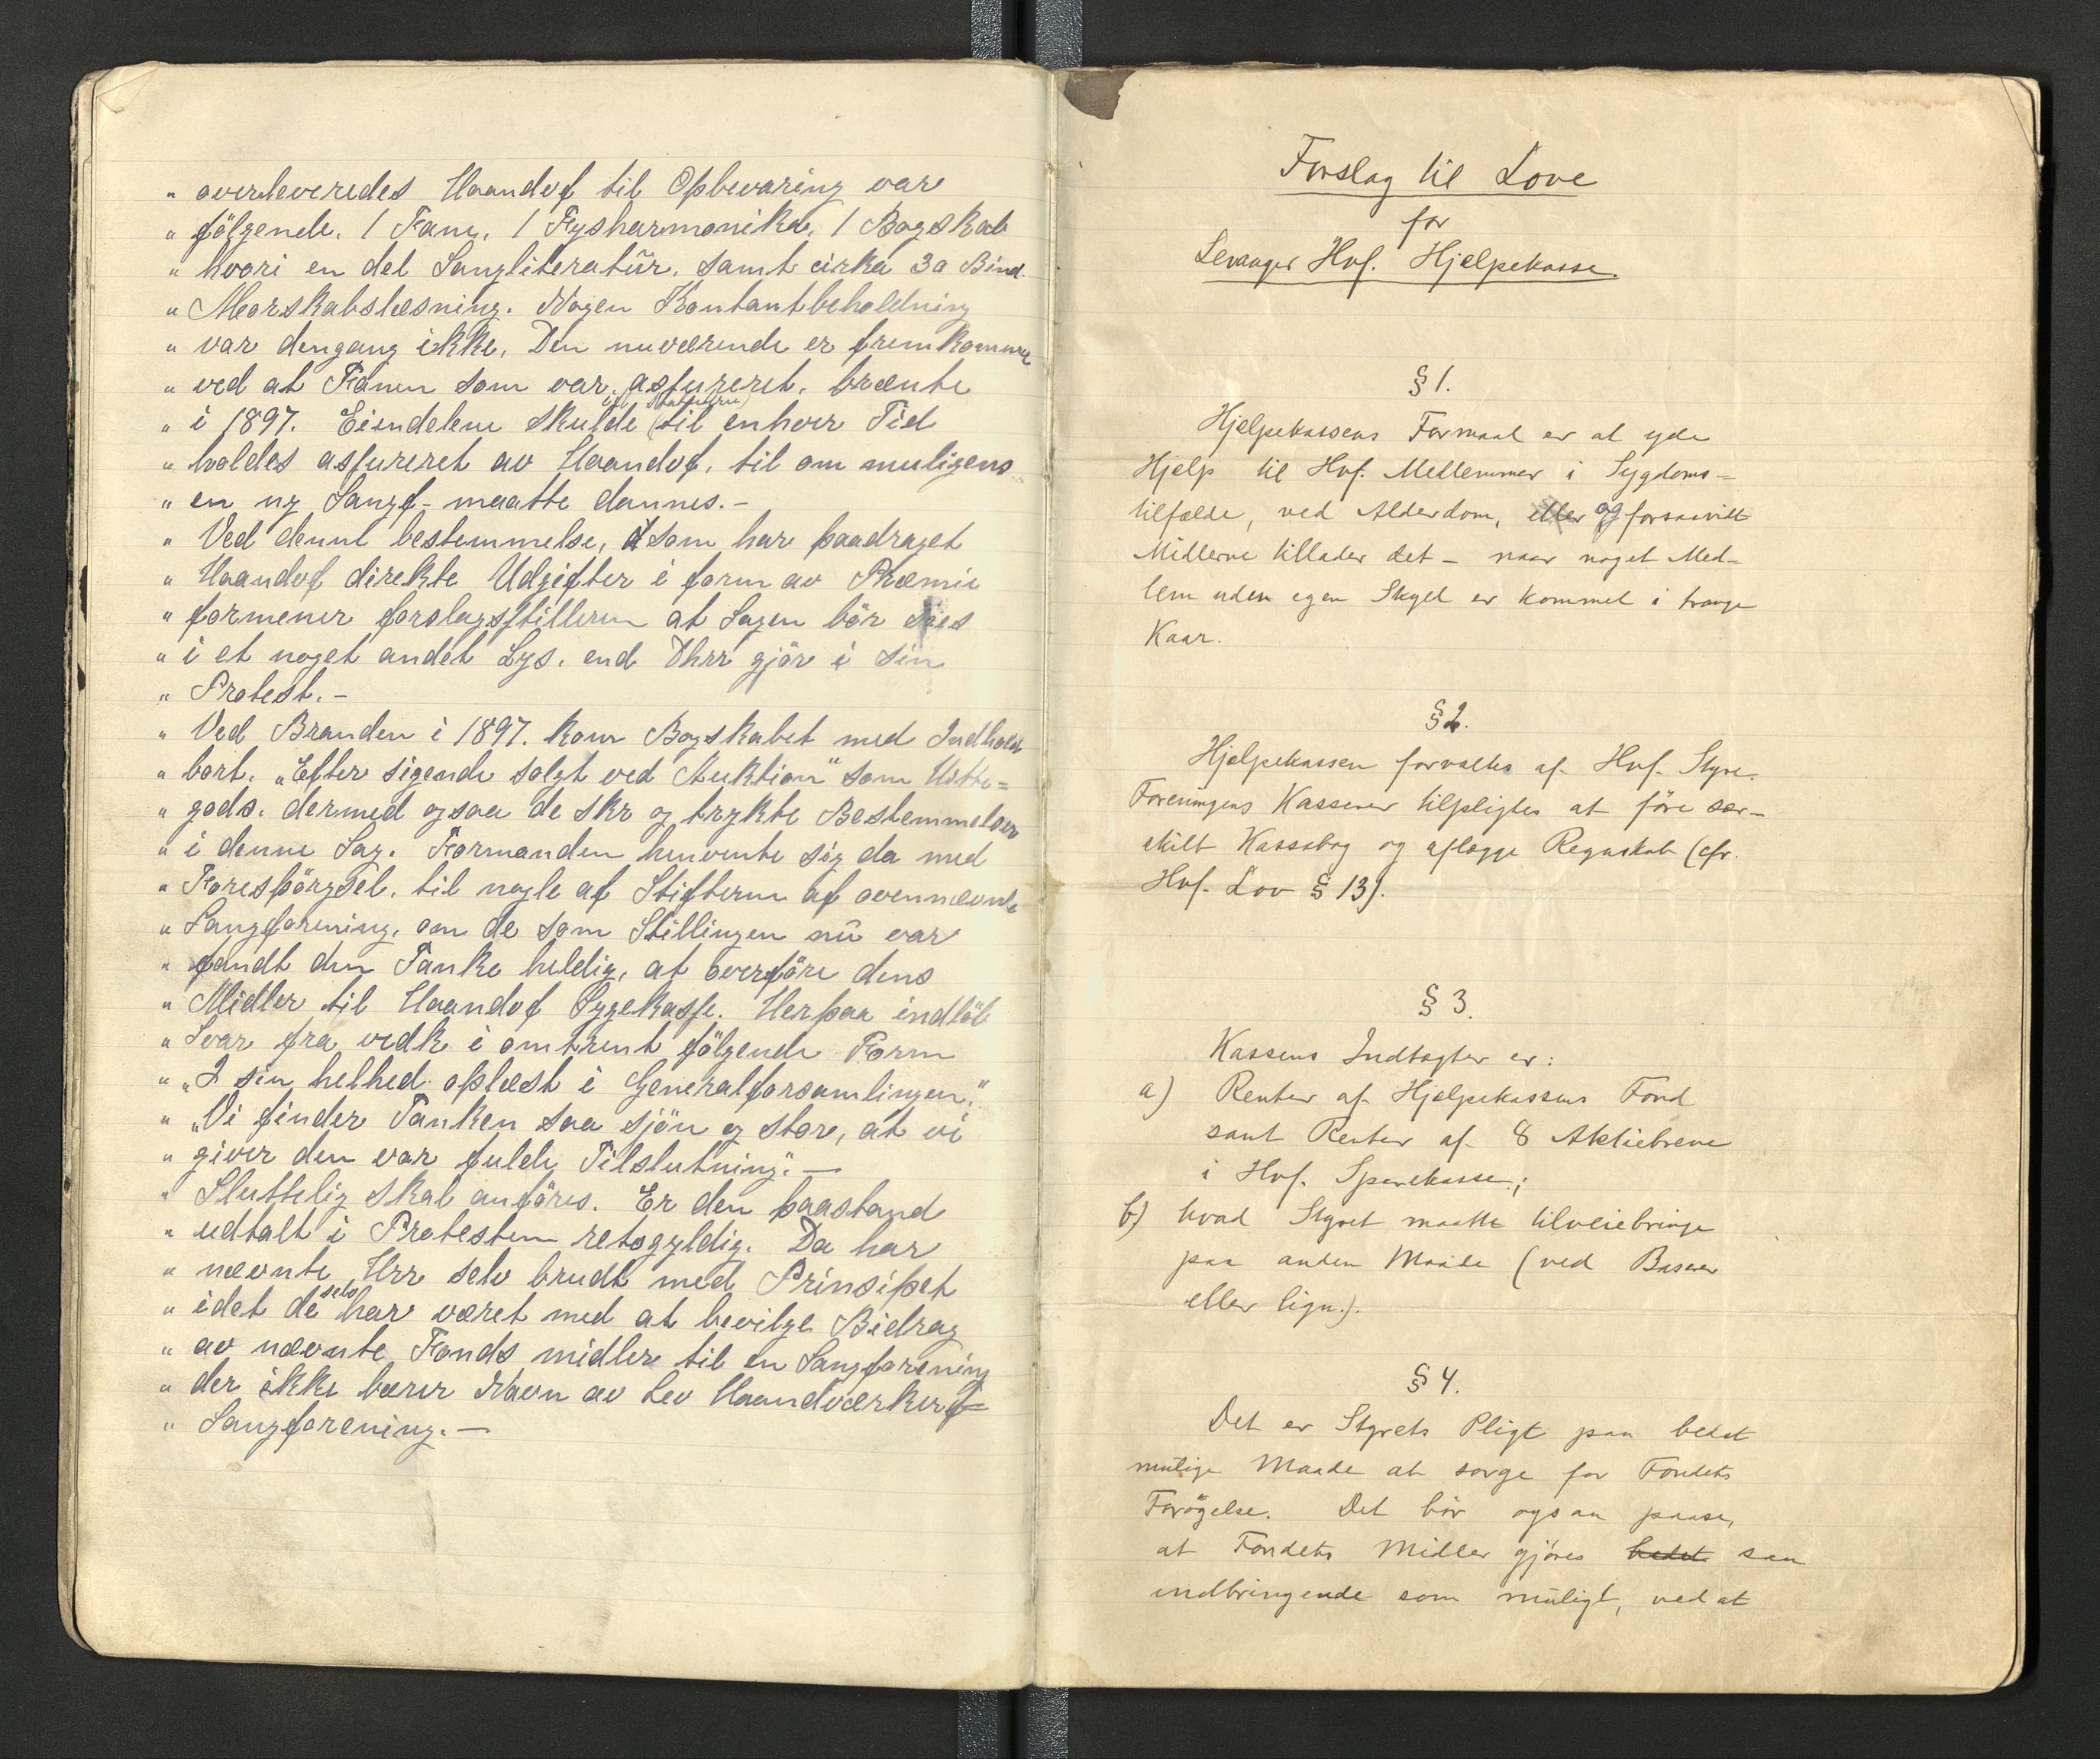 „ overleveredes Haandvf til Opbevaring var
„ fölgende. 1 Fane, 1 Fysharmonika, 1 Bogskab
„ hvori en del Sangliteratür. samt cirka 30 Bind.
„ Morskabslæsning. Nogen Kontantbeholdning
„ var dengang ikke, Den nuværende er fremkommet
„ ved at Fanen som var assureret, brænte
„ i 1897. Eiendelene skulde (til enhver Tid
„ holdes assureret av Haandvf, til om muligens
„ en ny Sangf- maatte dannes.-
„ Ved denne bestemmelse, som har paadraget
„ Haandvf direkte Udgifter i form av Præmie
„ formener forslagsstilleren at Sagen bör sees
„ i et noget andet Lys. end Dhrr gjör i sin
„ Protest.-
„ Ved Branden i 1897. kom Bogskabet med Indhold
„ bort. „Efter sigende solgt ved Auktion" som Hitte=
„ gods. dermed ogsaa de skr og trykte Bestemmelser
„ i denne Sag. Formanden henvente sig da med
„ Forespörgsel. til nogle af Stifterne af ovennævnte
„ Sangforening, om de som Stillingen nü var
„ fandt den Tanke heldig, at överföre dens
„ Midler til Haandvf Sygekasse. Herpaa indlöb
„ Svar fra vedk i omtrent fölgende Form
„ „I sin helhed oplæst i Generalforsamlingen."
„ „Vi finder Tanken saa sjön og stor, at vi
„ giver den vor fulde Tilslutning". —
„ Sluttelig skal anföres. Er den paastand
„ udtalt i Protesten retsgyldig. Da har
„ nævnte Hrr selv brudt med Prinsipet
„ idet de selv har været med at bevilge Bidrag
„ av nævnte Fonds midler til en Sangforening
„ der ikke bærer Navn av Lev Haandværkerf=
„ Sangforening.—
Forslag til Love
for
Levanger Hvf. Hjelpekasse.
§ 1.
Hjælpekassens Formaal er at yde
Hjælp til Hvf. Medlemmer i Sygdoms-
tilfælde, ved Alderdom, eller og forsaavidt
Midlerne tillader det - naar noget Med-
lem uden egen Skyld er kommet i trange
Kaar.
§ 2.
Hjælpekassen forvaltes af Hvf. Styre.
Foreningens Kasserer tilpligtes at före sær-
skilt Kassabog og aflægge Regnskab (cfr.
Hvf. Lov § 13).
§ 3.
Kassens Indtægter er:
a) Renter af Hjælpekassens Fond
samt Renter af 8 Aktiebreve
i Hvf. Sparekasse;
b) hvad Styret maatte tilveiebringe
paa anden Maade (ved Basarer
eller lign.).
§ 4.
Det er Styrets Pligt paa bedst
mulige Maade at sörge for Fondets
Forögelse. Det bör ogsaa paase,
at Fondets Midler gjöres bedst saa
indbringende som müligt, ved at